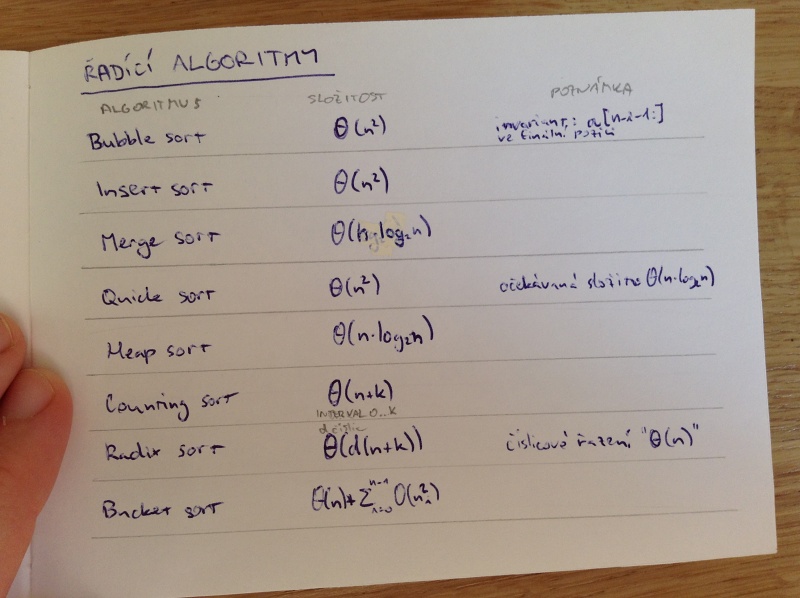 ŘADÍCÍ ALGORITMY
ALGORITMUS SLOŽITOST POZNÁMKA
Bubble sort Θ(n²) invariant: a[n-i-1:]
ve finální pozici
Insert sort Θ(n²)
Merge sort Θ(n·log₂n)
Quick sort Θ(n²) očekávaná složitost Θ(n·log₂n)
Heap sort Θ(n·log₂n)
Counting sort Θ(n+k)
INTERVAL 0..K
d číslic
Radix sort Θ(d(n+k)) číslicové řazení "Θ(n)"
Bucket sort Θ(n)+∑ⁿ⁻¹ᵢ₌₀ O(nᵢ²)